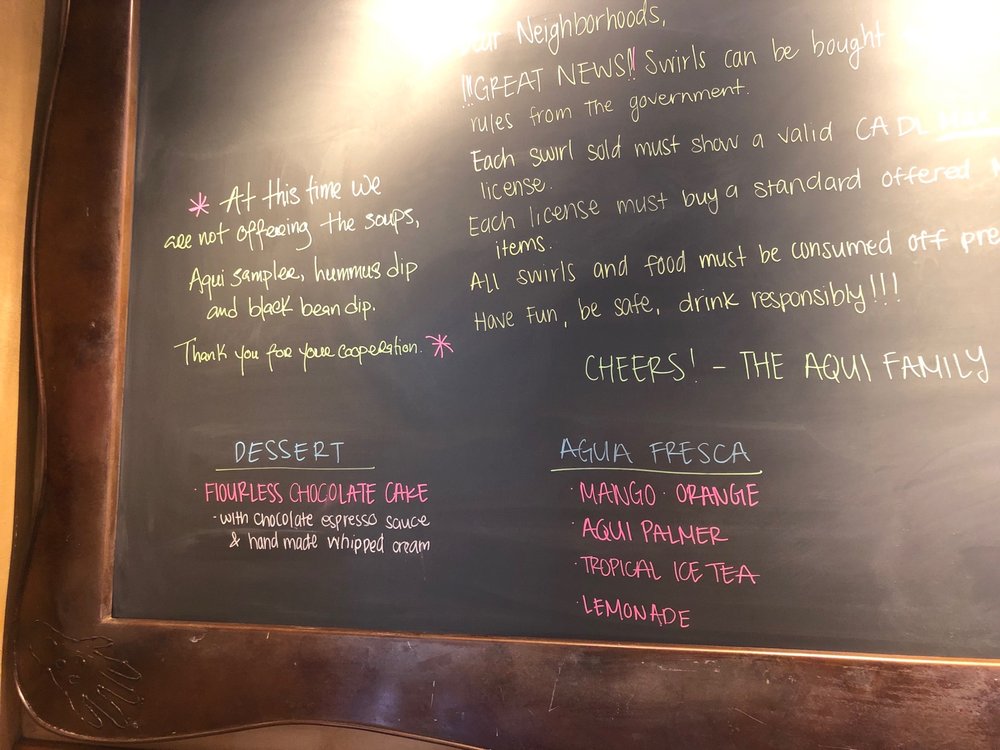 * At this time we
are not offering the soups,
Aqui sampler, hummus dip
and black bean dip.
Thank you for your cooperation. *
Neighborhoods,
!!!GREAT NEWS!!! Swirls can be bought
rules from the government.
Each swirl sold must show a valid CA DL
license.
Each license must buy a standard offered
items.
All swirls and food must be consumed off
Have Fun, be safe, drink responsibly!!!
CHEERS! - THE AQUI FAMILY
DESSERT
· FLOURLESS CHOCOLATE CAKE
- with chocolate espresso sauce
& hand made whipped cream
AGUA FRESCA
· MANGO · ORANGE
· AQUI PALMER
· TROPICAL ICE TEA
· LEMONADE